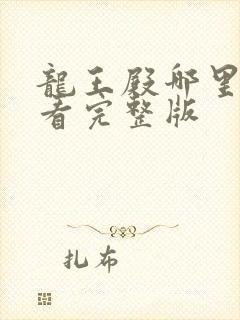 龍王殿哪里
看完整版
扎布